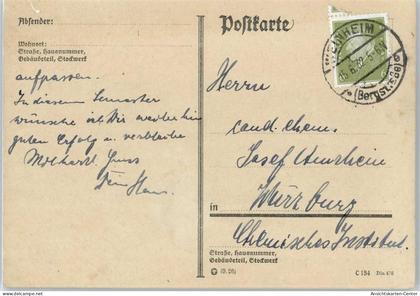 Absender:
Wohnort:
Straße, Hausnummer,
Gebäudeteil, Stockwerk
aufpassen.
In diesem Semester
wünsche ich Dir weiterhin
guten Erfolg u. verbleibe
Mit herzl. Gruss
Dein Hans.
Postkarte
WEINHEIM
(Bergstraße)
Herrn
cand. chem.
Josef Amrhein
in Würzburg
Chemisches Institut.
Straße, Hausnummer,
Gebäudeteil, Stockwerk
C 154 Din 476
Ansichtskarten-Center